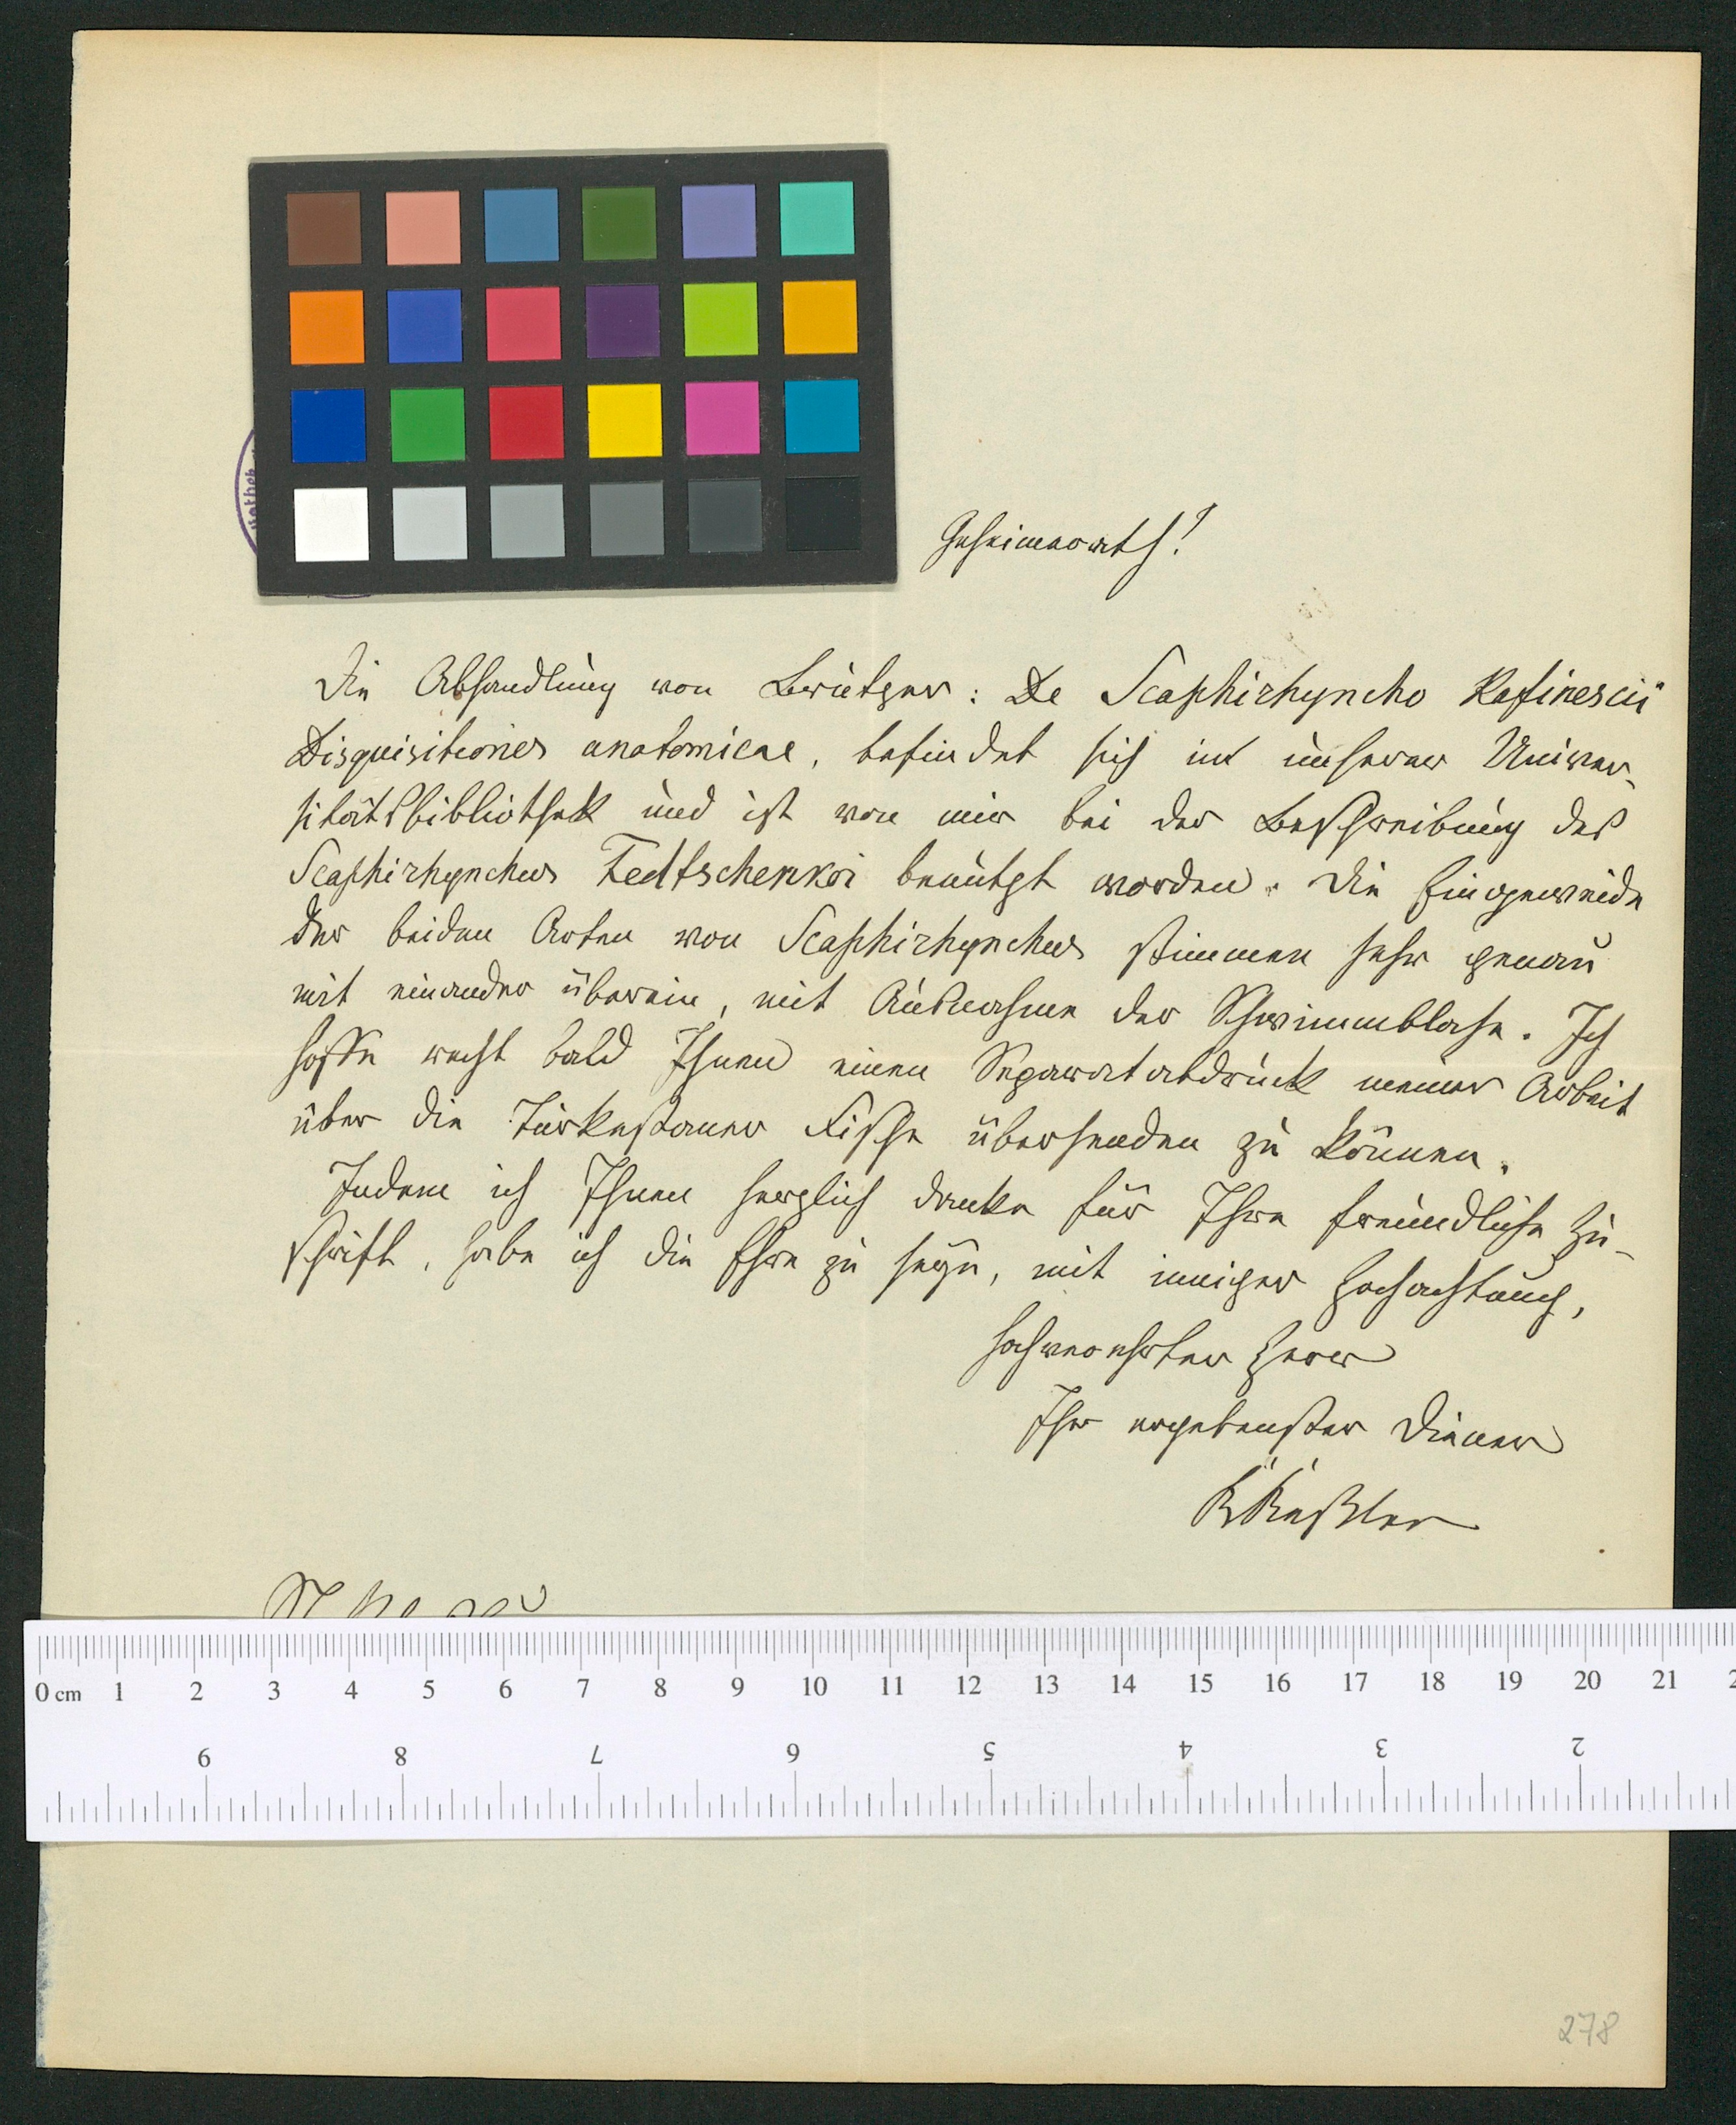 Geheimerath!
Die Abhandlung von Brützer: De Scaphirhyncho Rafinescii
Disquisitiones anatomicae, befindet sich in unserer Univer-
sitätsbibliothek und ist von mir bei der Beschreibung des
Scaphirhynchus Fedtschenkoi benützt worden. Die Eingeweide
der beiden Arten von Scaphirhynchus stimmen sehr genau
mit einander überein, mit Ausnahme der Schwimmblase. Ich
hoffe recht bald Ihnen einen Separatabdruck meiner Arbeit
über die Turkestaner Fische übersenden zu können.
Indem ich Ihnen herzlich danke für Ihre freundliche Zu-
schrift, habe ich die Ehre zu seyn, mit inniger Hochachtung,
hochverehrter Herr
Ihr ergebenster Diener
K Keßler
0 cm 1 2 3 4 5 6 7 8 9 10 11 12 13 14 15 16 17 18 19 20 21
9 8 7 6 5 4 3 2
278